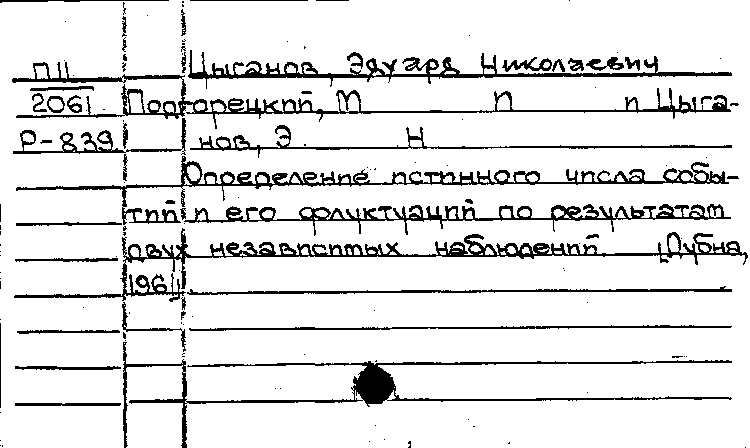 ПІІ Цыганов, Эдуард Николаевич
2061 Подгорецкий, М П и Цыга-
Р-839 нов, Э Н
Определение истинного числа собы-
тий и его флуктуаций по результатам
двух независимых наблюдений. [Дубна,
1961].